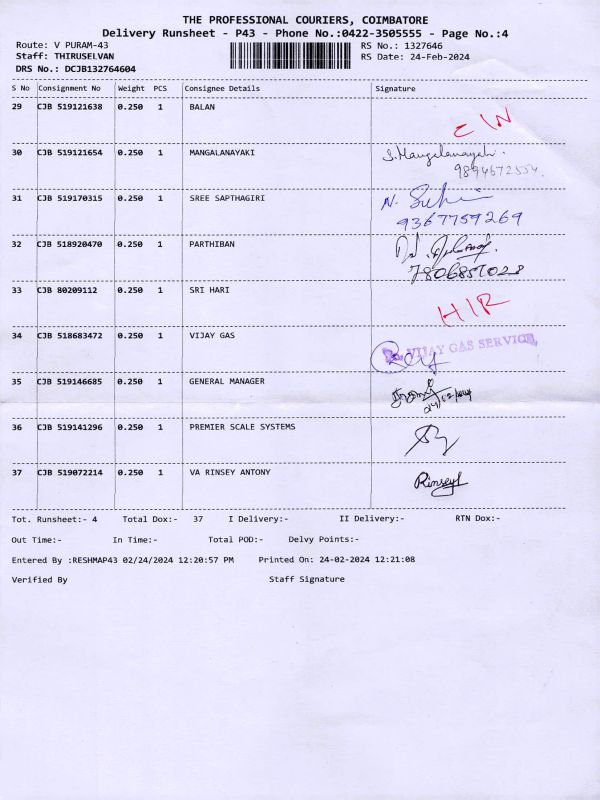 THE PROFESSIONAL COURIERS, COIMBATORE
Delivery Runsheet - P43 - Phone No.:0422-3505555 - Page No.:4
Route: V PURAM-43 RS No.: 1327646
Staff: THIRUSELVAN RS Date: 24-Feb-2024
DRS No.: DCJB132764604
S No Consignment No Weight PCS Consignee Details Signature
29 CJB 519121638 0.250 1 BALAN
C/N
30 CJB 519121654 0.250 1 MANGALANAYAKI S.Mangalanayaki.
9894672554.
31 CJB 519170315 0.250 1 SREE SAPTHAGIRI N.
9367759269
32 CJB 518920470 0.250 1 PARTHIBAN
7806857028
33 CJB 80209112 0.250 1 SRI HARI
H/R
34 CJB 518683472 0.250 1 VIJAY GAS VIJAY GAS SERVICE,
35 CJB 519146685 0.250 1 GENERAL MANAGER
36 CJB 519141296 0.250 1 PREMIER SCALE SYSTEMS
37 CJB 519072214 0.250 1 VA RINSEY ANTONY Rinsey
Tot. Runsheet:- 4 Total Dox:- 37 I Delivery:- II Delivery:- RTN Dox:-
Out Time:- In Time:- Total POD:- Delvy Points:-
Entered By :RESHMAP43 02/24/2024 12:20:57 PM Printed On: 24-02-2024 12:21:08
Verified By Staff Signature